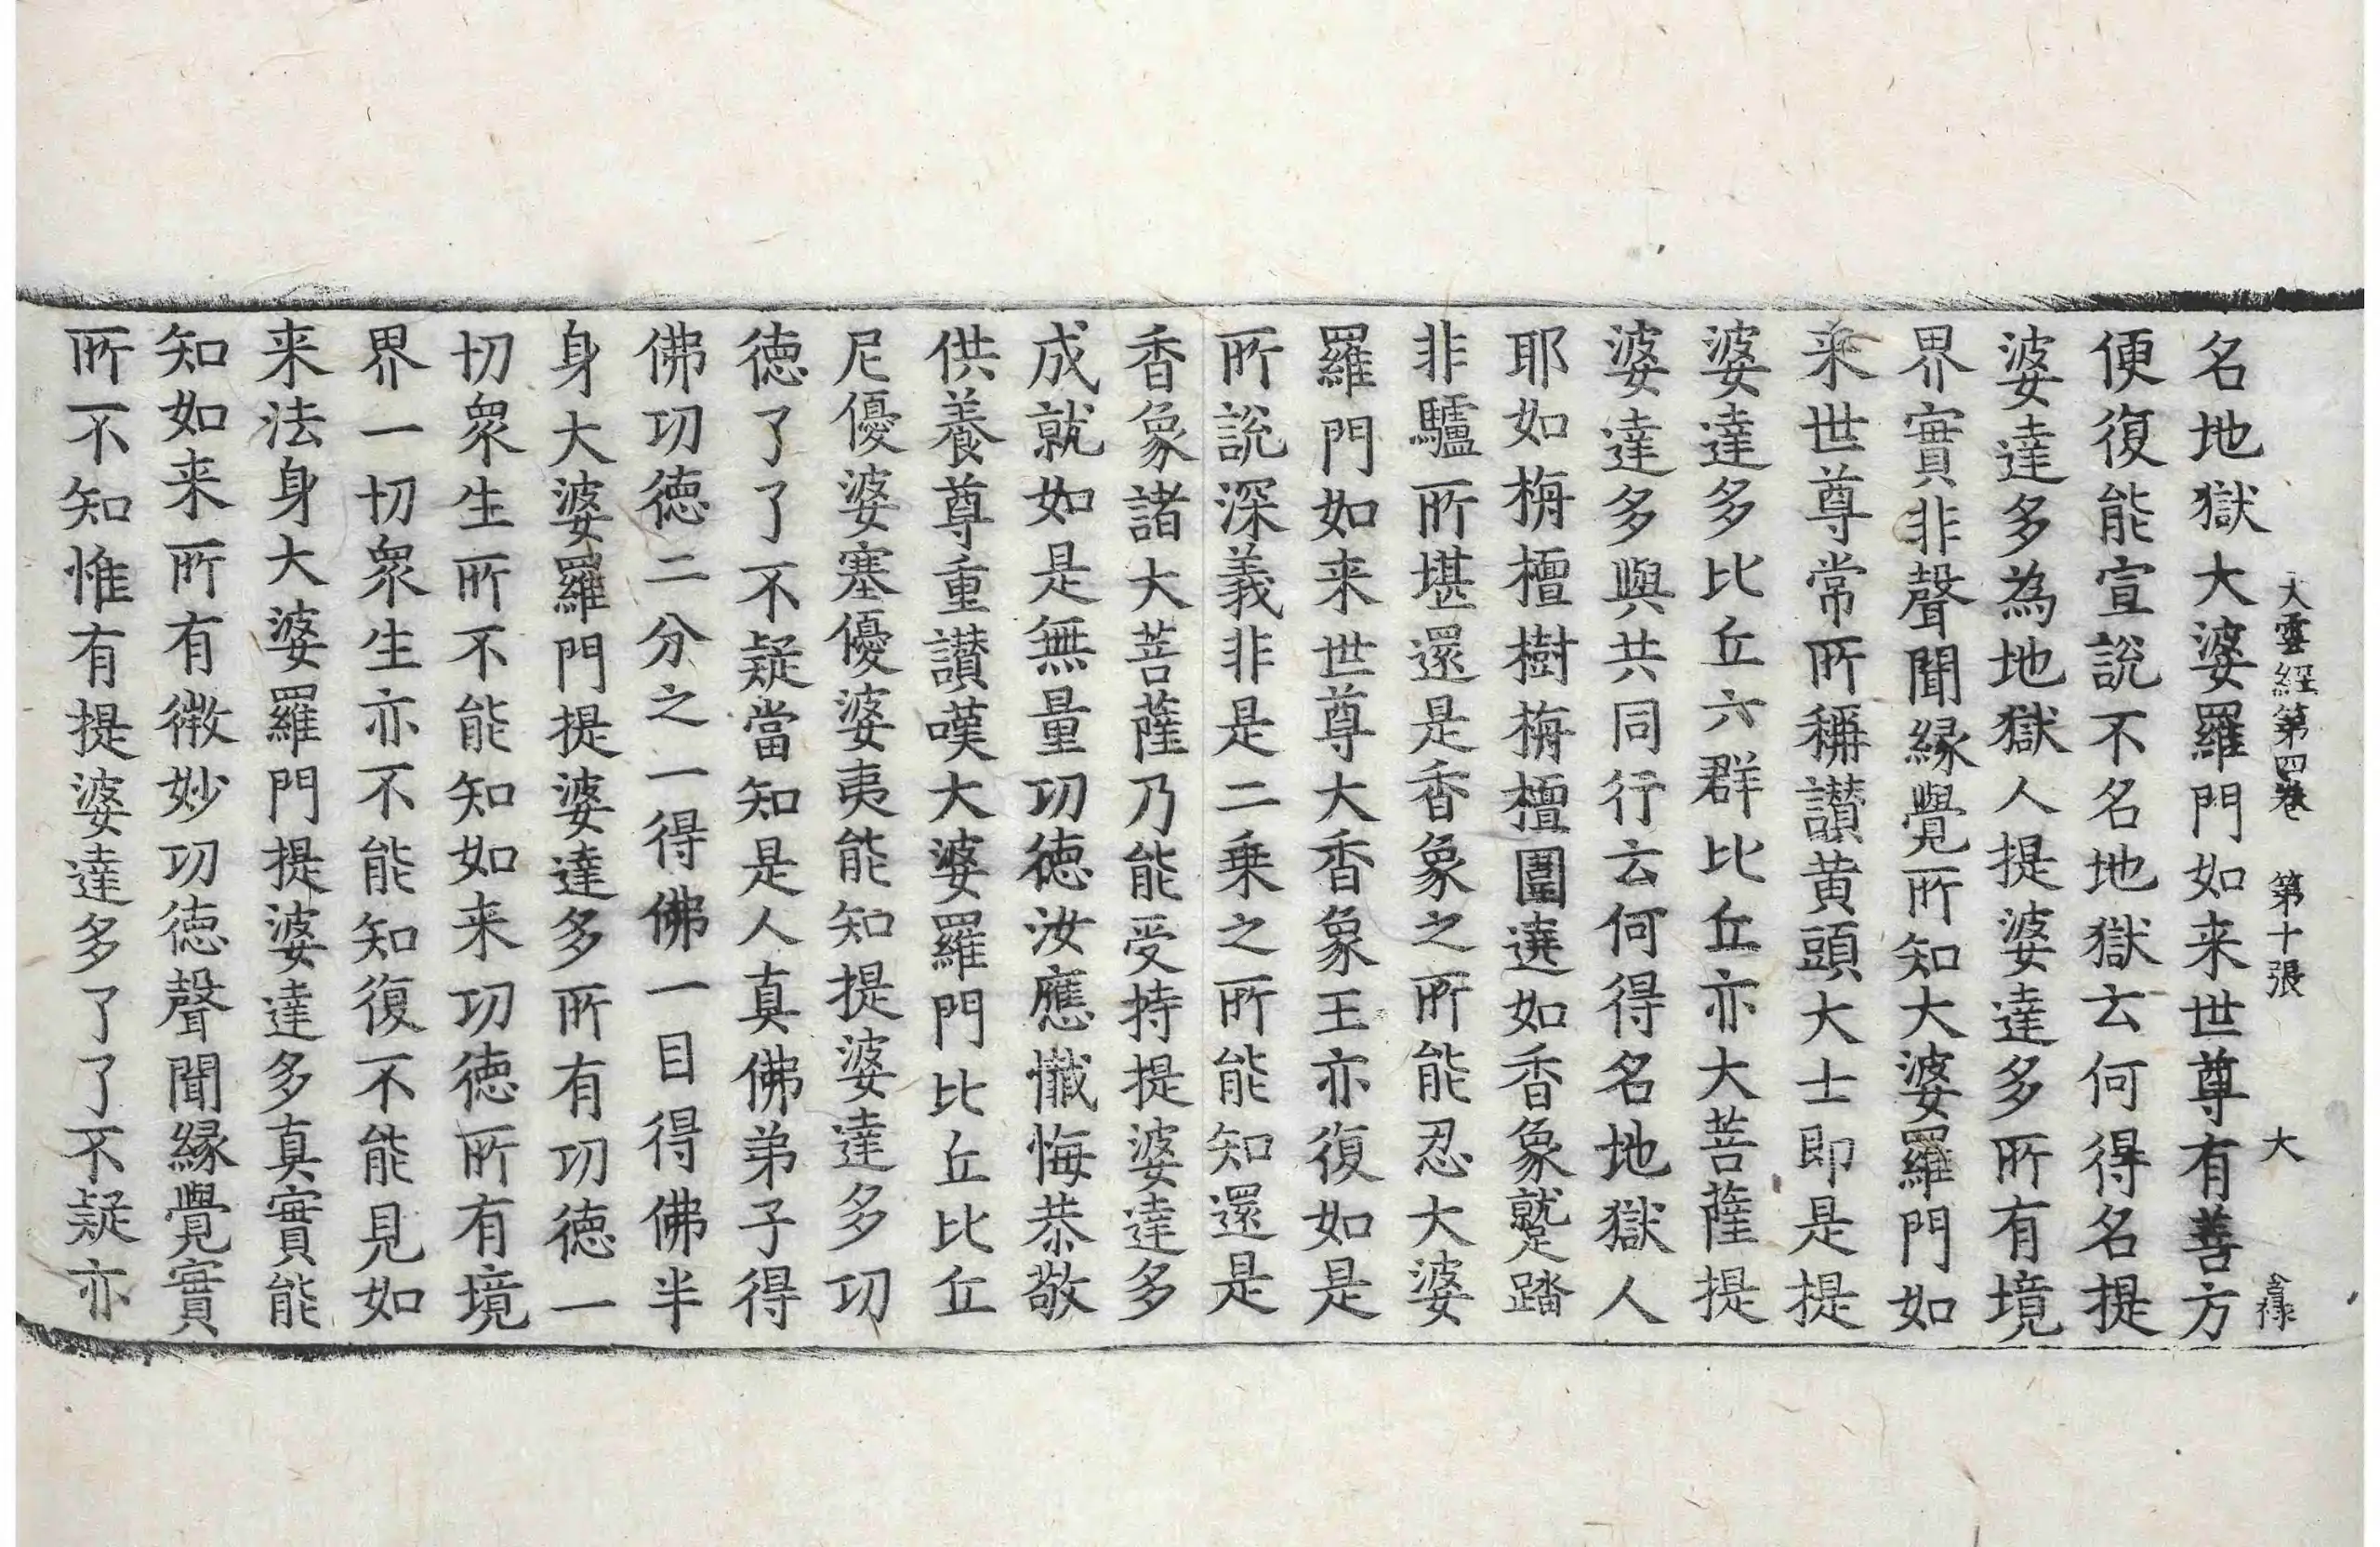 大雲經第四卷 第十張 大 僉祿
名地獄大婆羅門如来世尊有善方
便復能宣說不名地獄云何得名提
婆達多為地獄人提婆達多所有境
界實非聲聞緣覺所知大婆羅門如
来世尊常所稱讃黃頭大士即是提
婆達多比丘六群比丘亦大菩薩提
婆達多與共同行云何得名地獄人
耶如栴檀樹栴檀圍遶如香象蹴踏
非驢所堪還是香象之所能忍大婆
羅門如来世尊大香象王亦復如是
所說深義非是二乗之所能知還是
香象諸大菩薩乃能受持提婆達多
成就如是無量功徳汝應懺悔恭敬
供養尊重讃嘆大婆羅門比丘比丘
尼優婆塞優婆夷能知提婆達多功
徳了了不疑當知是人真佛弟子得
佛功徳二分之一得佛一目得佛半
身大婆羅門提婆達多所有功徳一
切眾生所不能知如来功徳所有境
界一切眾生亦不能知復不能見如
来法身大婆羅門提婆達多真實能
知如来所有微妙功徳聲聞緣覺實
所不知惟有提婆達多了了不疑亦